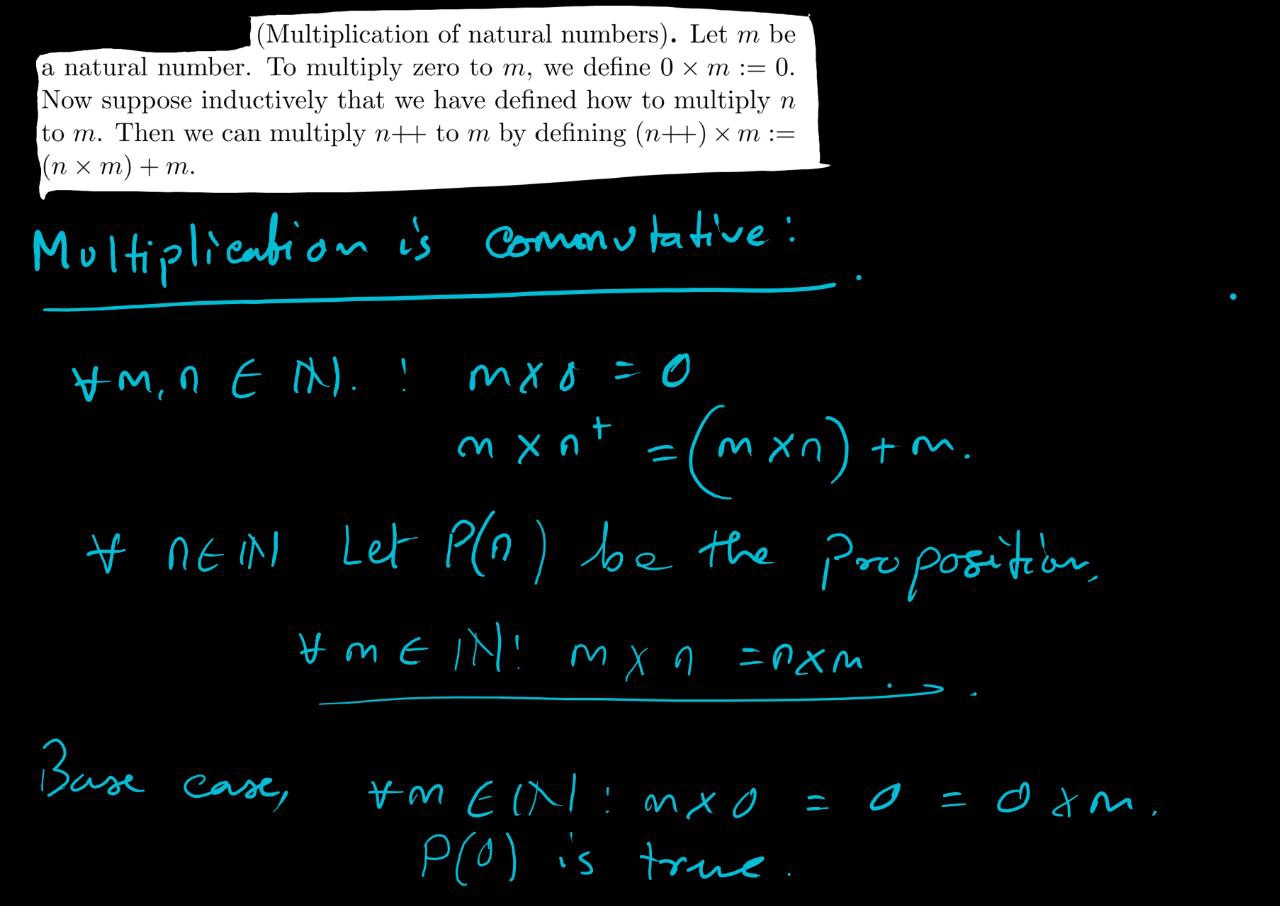 (Multiplication of natural numbers). Let m be
a natural number. To multiply zero to m, we define 0 × m := 0.
Now suppose inductively that we have defined how to multiply n
to m. Then we can multiply n++ to m by defining (n++) × m :=
(n × m) + m.
Multiplication is commutative:
∀ m, n ∈ ℕ. : m × 0 = 0
m × n⁺ = (m × n) + m.
∀ n ∈ ℕ Let P(n) be the proposition,
∀ m ∈ ℕ: m × n = n × m.
Base case, ∀ m ∈ ℕ : m × 0 = 0 = 0 × m.
P(0) is true.